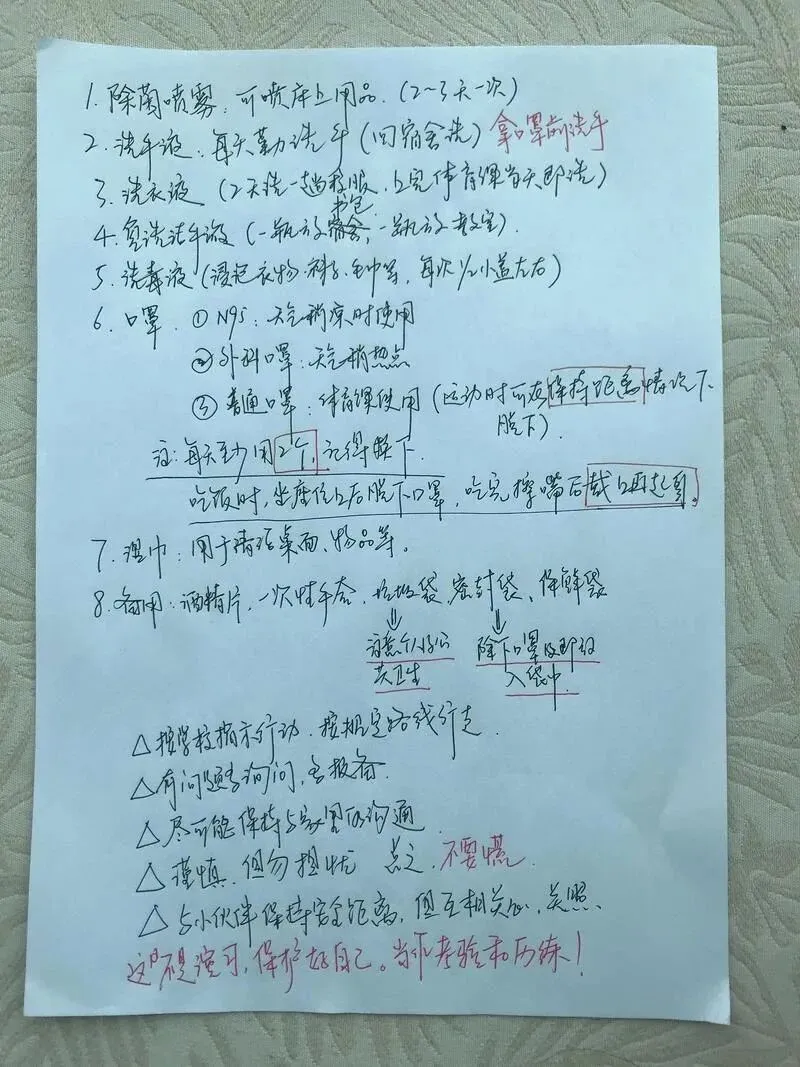 1. 除菌喷雾：可喷床上用品。（2~3天一次）
2. 洗手液：每天勤洗手（回宿舍洗）拿口罩前洗手
3. 洗衣液（2天洗一趟校服，上完体育课当天即洗）
书包
4. 免洗洗手液（一瓶放宿舍，一瓶放教室）.
5. 洗毒液（浸泡衣物、毛巾等，每次1/2小盖左右）
6. 口罩. ① N95：天气稍凉时使用
② 外科口罩：天气稍热点
③ 普通口罩：体育课使用（运动时可在保持距离情况下
脱下）.
注：每天至少用2个，记得换下.
吃饭时，坐座位上后脱下口罩，吃完擦嘴后戴上再起身。
7. 湿巾：用于清洁桌面、物品等。
8. 备用：酒精片，一次性手套，垃圾袋，密封袋、保鲜袋
注意个人及公
共卫生
除下口罩及即放
入袋中.
△按学校指示行动.按规定路线行走.
△有问题多询问，多报备.
△尽可能保持与家里的沟通.
△谨慎.但勿担忧 不要慌.
△与小伙伴保持安全距离，但互相关心、关照.
这不是演习，保护好自己。当作考验和历练！